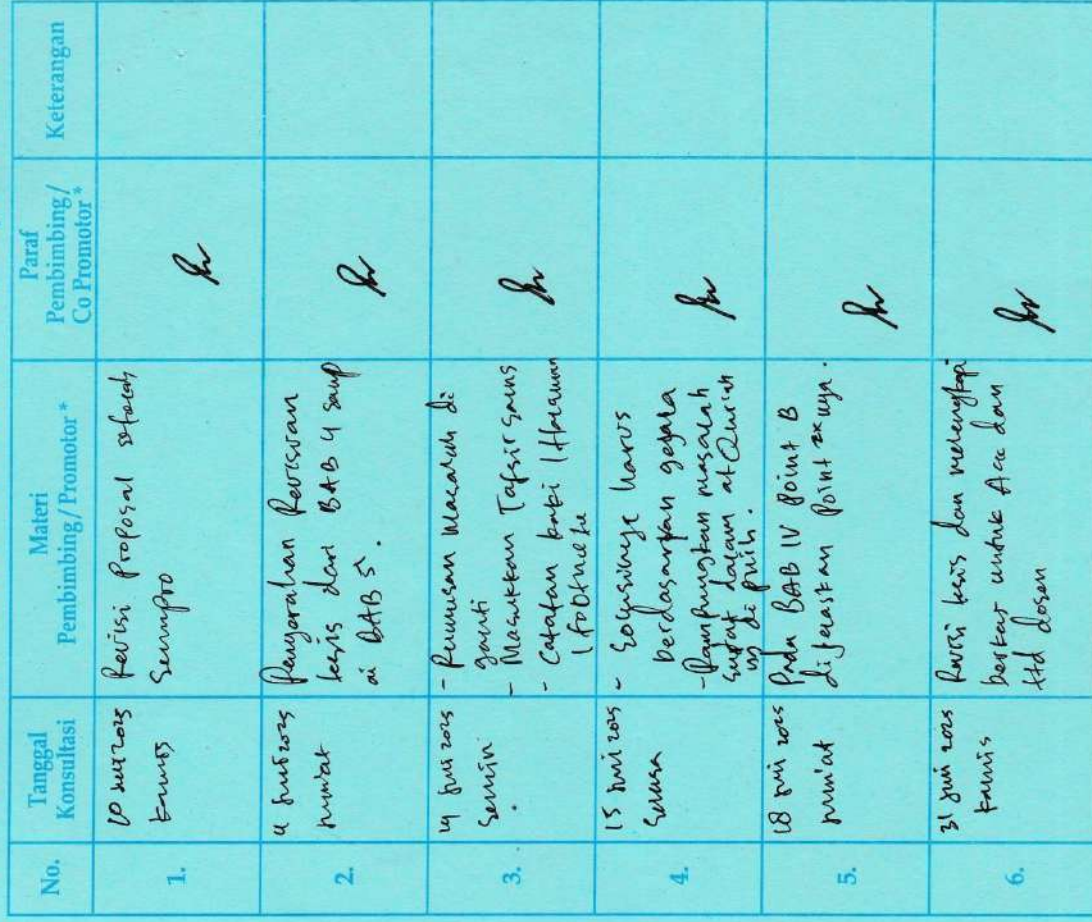 No.
Tanggal
Konsultasi
Materi
Pembimbing / Promotor *
Paraf
Pembimbing /
Co Promotor *
Keterangan
1.
2025
Kamis
Revisi Proposal setelah
Sempro
2.
4 2025
Jum'at
Pengarahan Revisian
tesis dari BAB 4 samp
ai BAB 5.
3.
14 2025
Senin
- Rumusan Masalah di
ganti
- Masukkan Tafsir Sains
- Catatan kaki
(Footnote
4.
15 2025
Selasa
- Solusinya harus
berdasarkan gejala
- Rampungkan masalah
surat dalam al Qur'an
yg di pilih.
5.
18 2025
Jum'at
Pada BAB IV Point B
dijelaskan Point 2x nya.
6.
31 2025
Kamis
Revisi tesis dan melengkapi
berkas untuk Acc dan
ttd dosen